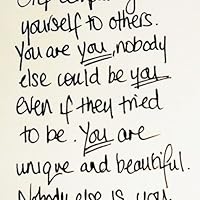 Stop comparing
yourself to others.
You are you, nobody
else could be you
even if they tried
to be. You are
unique and beautiful.
Nobody else is you